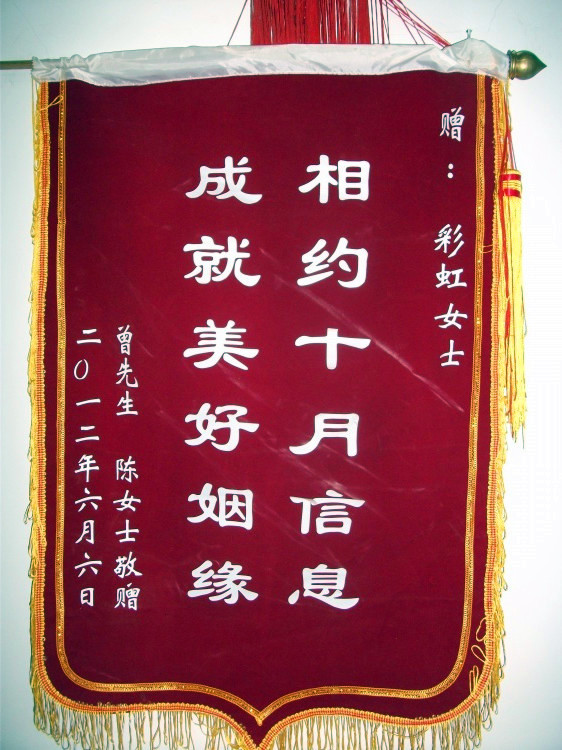 赠：彩虹女士
相约十月信息
成就美好姻缘
曾先生 陈女士敬赠
二0一二年六月六日